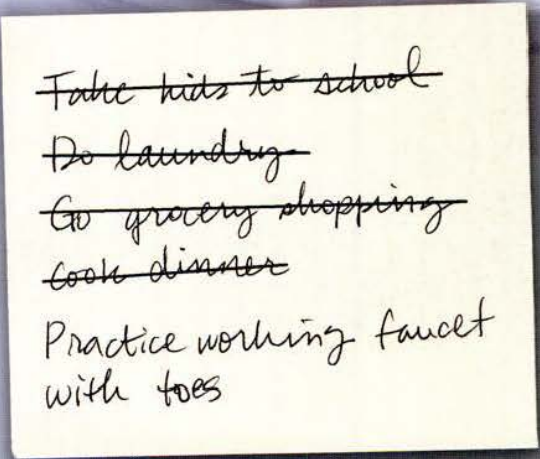 Take kids to school
Do laundry
Go grocery shopping
Cook dinner
Practice working faucet
with toes